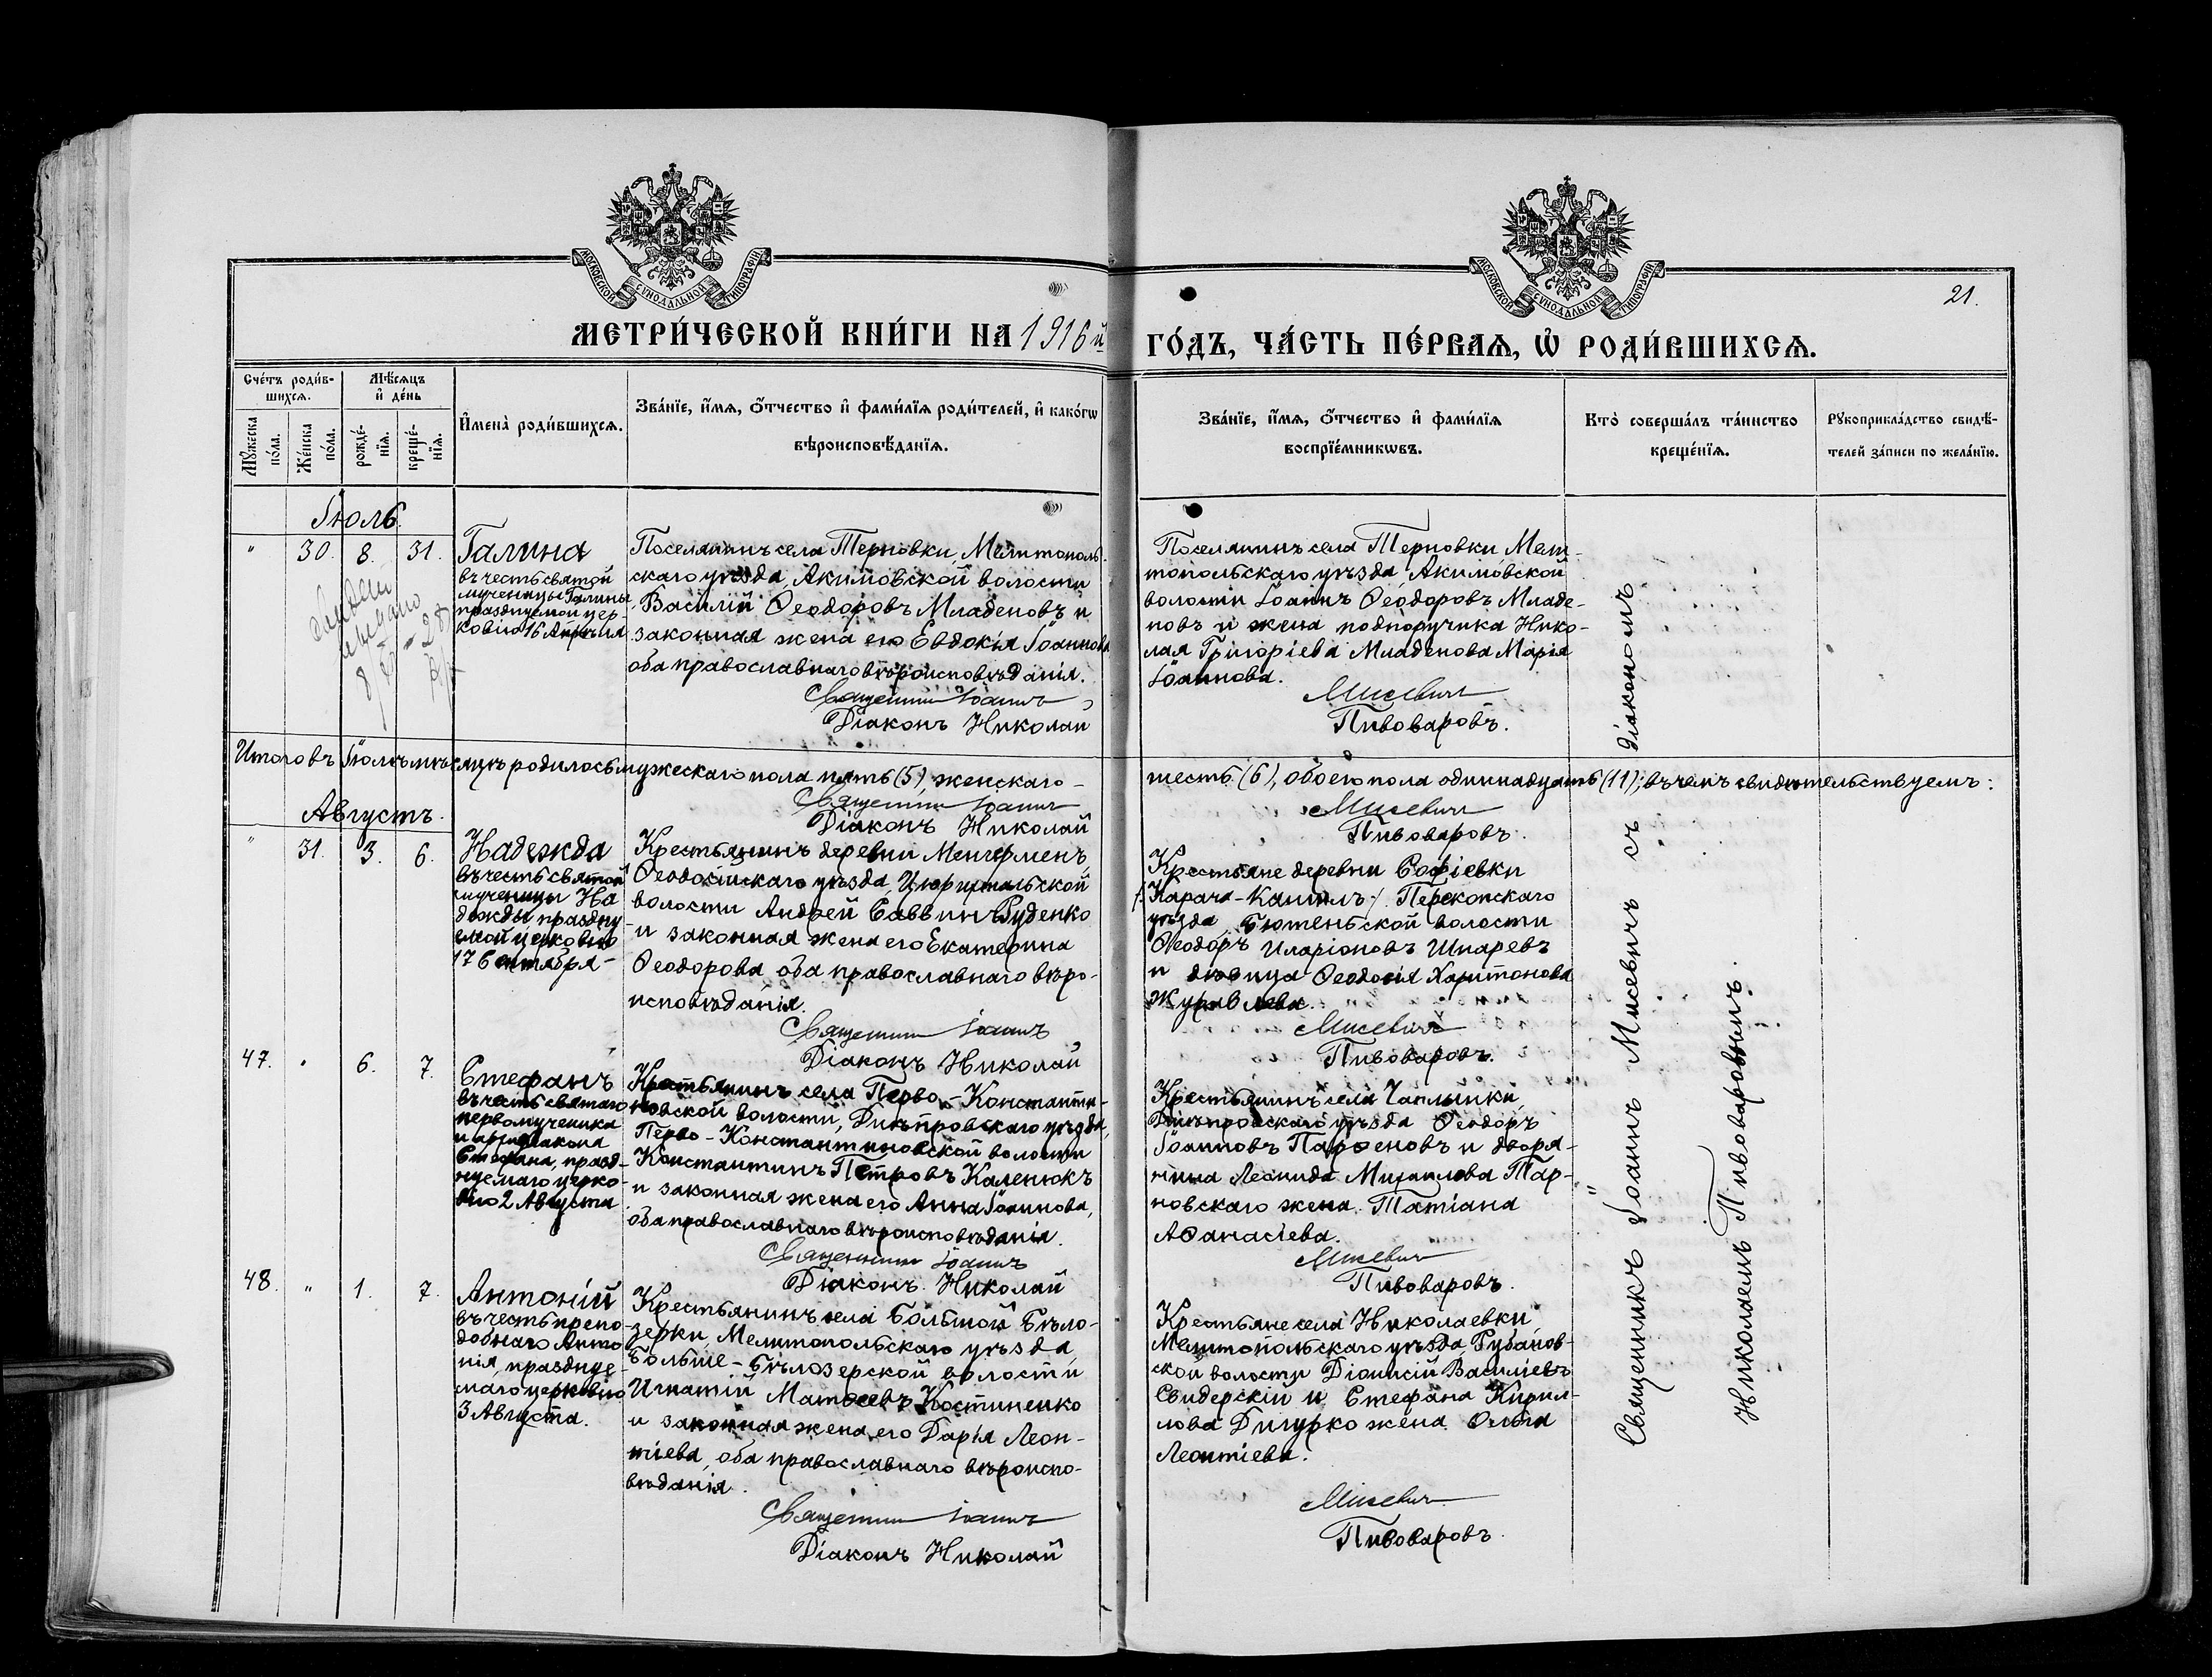 МОСКОВСКОЙ СѴНОДАЛЬНОЙ ТИПОГРАФІИ
МОСКОВСКОЙ СѴНОДАЛЬНОЙ ТИПОГРАФІИ
21.
МЕТРИ́ЧЕСКОЙ КНИ́ГИ НА 1916 й
ГО́ДЪ, ЧА́СТЬ ПЕ́РВАѦ, Ѡ҆ РОДИ́ВШИХСѦ.
Сче́тъ роди́в-
шихсѧ.
Мѣ́сѧцъ
и҆ де́нь
Мꙋ́жеска
по́ла.
Же́нска
по́ла.
рожде́-
нїѧ.
креще́-
нїѧ.
И҆мена̀ роди́вшихсѧ.
Зва́нїе, и҆́мѧ, ѻ҆́тчество и҆ фами́лїѧ роди́телей, и҆ како́гѡ
вѣроисповѣ́данїѧ.
Зва́нїе, и҆́мѧ, ѻ҆́тчество и҆ фами́лїѧ
воспрїе́мникѡвъ.
Кто̀ соверша́лъ та́инство
креще́нїѧ.
Рꙋкоприкла́дство свидѣ́-
телей за́писи по жела́нїю.
Іюль.
" 30. 8. 31.
Галина
въ честь святой
мученицы Галины
празднуемой цер-
ковію 16 Апрѣля
Поселянинъ села Терновки, Мелитополь
скаго уѣзда, Акимовской волости
Василій Ѳеодоровъ Младеновъ и
законная жена его Евдокія Іоаннова
оба православнаго вѣроисповѣданія.
Священникъ Іоаннъ
Діаконъ Николай
Поселянинъ села Терновки Мели-
топольскаго уѣзда, Акимовской
волости Іоаннъ Ѳеодоровъ Младе-
новъ и жена подпоручика Нико-
лая Григоріева Младенова Марія
Іоаннова.
Мисевичъ
Пивоваровъ.
Итого въ Іюлѣ мѣсяцѣ родилось мужескаго пола пять (5), женскаго -
шесть (6), обоего пола одиннадцать (11); въ чемъ свидѣтельствуемъ:
Священникъ Іоаннъ
Діаконъ Николай
Мисевичъ
Пивоваровъ.
Августъ.
" 31. 3. 6.
Надежда
въ честь святой
мученицы На
дежды праздну
емой церковію
17 Сентября -
Крестьянинъ деревни
Ѳеодосійскаго уѣзда, Цюрихтальской
волости Андрей Саввинъ Руденко
и законная жена его Екатерина
Ѳеодорова оба православнаго вѣро-
исповѣданія.
Священникъ Іоаннъ
Діаконъ Николай
Крестьяне деревни Софіевки
Перекопскаго
уѣзда волости
Ѳеодоръ Иларіоновъ
и дѣвица Ѳеодосія Харитонова
Журавлева.
Мисевичъ
Пивоваровъ.
47. " 6. 7.
Стефанъ
въ честь святаго
первомученика
и архидіакона
Стефана, празд-
нуемаго церко-
вію 2 Августа
Крестьянинъ села Перво-Константи-
новской волости, Днѣпровскаго уѣзда,
Перво-Константиновской волости
Константинъ Петровъ Каленюкъ
и законная жена его Анна Іоаннова,
оба православнаго вѣроисповѣданія.
Священникъ Іоаннъ
Діаконъ Николай
Крестьянинъ села Чаплынки
Днѣпровскаго уѣзда Ѳеодоръ
Іоанновъ Парѳеновъ и дворя-
нина Леонида Михаилова Тар-
новскаго жена Татіана
Аѳанасіева.
Мисевичъ
Пивоваровъ.
48. " 1. 7.
Антоній
въ честь препо-
добнаго Анто
нія, празднуе-
маго церковію
3 Августа.
Крестьянинъ села Большой Бѣло-
зерки Мелитопольскаго уѣзда,
Больше-Бѣлозерской волости
Игнатій Матѳеевъ Костиненко
и законная жена его Дарія Леон-
тіева, оба православнаго вѣроиспо-
вѣданія.
Священникъ Іоаннъ
Діаконъ Николай
Крестьяне села Николаевки,
Мелитопольскаго уѣзда, Рубанов-
ской волости Діонисій Василіевъ
Свидерскій и Стефана Кирил-
лова Дигурко жена Ольга
Леонтіева.
Мисевичъ
Пивоваровъ.
Священникъ Іоаннъ Мисевичъ съ діакономъ
Николаемъ Пивоваровымъ.